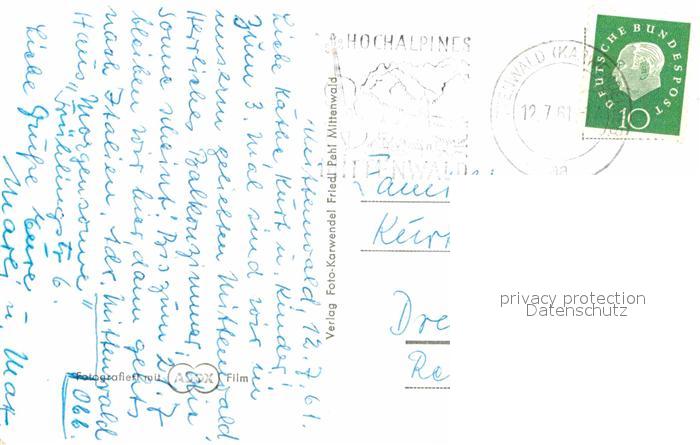 Mittenwald, 12.7.61.
Liebe Käthe, Kurt u. Kinder!
Zum 3. Mal sind wir in
unserm geliebten Mittenwald
Herrliches Balkonzimmer, die
Sonne scheint! Bis zum 21.7.
bleiben wir hier, dann geht's
nach Italien. Adr. Mittenwald
Obb.
Haus "Morgensonne"
Frühlingstr 6.
Liebe Grüße Eure
u.
Verlag Foto-Karwendel Friedl Pehl Mittenwald
Fotografiert mit ADOX Film
HOCHALPINES
MITTENWALD
MITTENWALD (KA
12.7.61
aa
DEUTSCHE BUNDESPOST
10
Fami
Kur
Dre
Re
privacy protection
Datenschutz